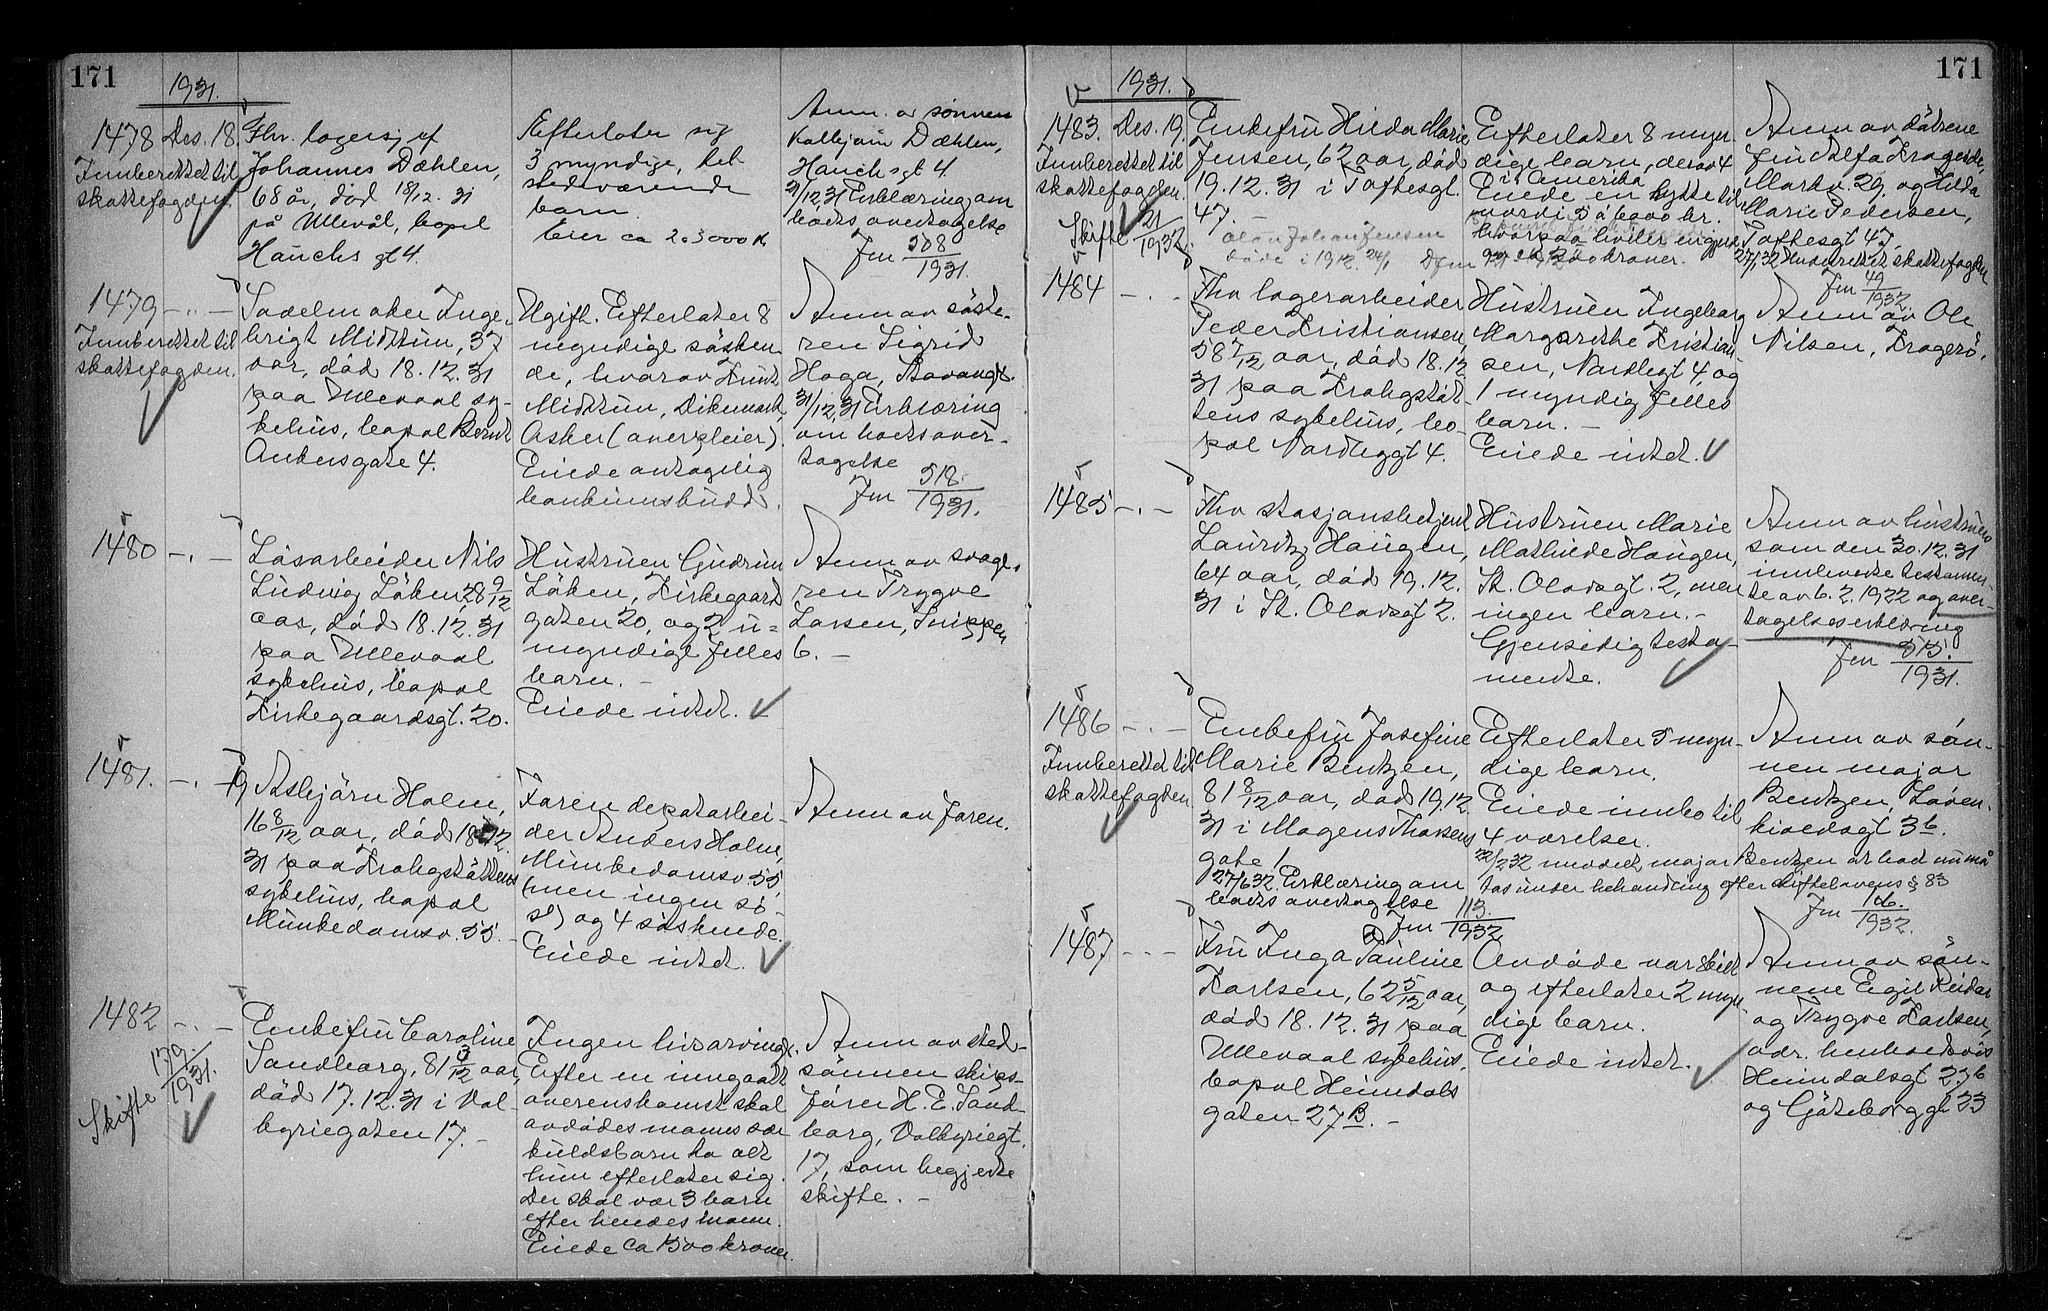 171
1931.
1478 Des. 18.
Innberettet til
skattefogden.
Fhv. lagersj ef
Johannes Dæhlen,
68 år, død 18/12 31
på Ullevål, bopel
Hauchs gt 4.
Efterlater sig
3 myndige, tel
stedsværende
barn.
Eier ca 2.3000 K
Anm. av sønnen
Dæhlen,
Hauchsgt 4
31/12,31 Erklæring om
boets overtagelse
Jnr 508/1931.
1479 -"-
Innberettet til
skattefogden.
Sadelmaker Inge-
brigt Midttun, 37
aar, död 18.12.31
paa Ullevaal sy-
kehus, bopel Bernt
Ankersgate 4.
Ugift. Efterlater 8
myndige sösken-
de, hvorav Knut
Midttun, Dikemark,
Asker (overpleier).
Eiede antagelig
bankinnskudd.
Anm av söste-
ren Sigrid
Haga, Stavangt.
31/12,31 Erklæring
om boets over-
tagelse
Jnr 518/1931.
1480 -"-
Lösarbeider Nils
Ludvig Löken, 28 9/12
aar, död 18.12.31
paa Ullevaal
sykehus, bopel
Kirkegaardsgt. 20.
Hustruen Gudrun
Löken, Kirkegaard
gaten 20, og 2 u=
myndige felles
barn. -
Eiede intet.
Anm av svoge-
ren Trygve
Larsen, Snippen
6. -
1481. -"-
Asbjörn Holm,
16 8/12 aar, död 18.12.
31 paa Krohgstöttens
sykehus, bopel
Munkedamsv. 55.
Faren depotarbei-
der Anders Holm,
Munkedamsv 55,
(men ingen sö-
st) og 4 söskende.
Eiede intet.
Anm av faren.
1482 -"-
Skifte 179/1931.
Enkefru Caroline
Sandborg, 81 3/12 aar,
död 17.12.31 i Val-
kyriegaten 17. -
Ingen livsarving.
Efter en inngaatt
overenskomst skal
avdödes manns sær
kuldsbarn ha alt
hun efterlater sig.
Der skal vær 3 barn
efter hendes mann.
Eiede ca 1500 kroner.
Anm av sted-
sönnen skips-
förer H. E. Sand-
borg, Valkyriegt.
17, som begjerte
skifte. -
171
1931.
1483. Des. 19.
Innberettet til
skattefogden.
Skifte 21/1932.
Enkefru Hilda Marie
Jensen, 62 aar, död
19.12.31 i Toftesgt.
47. -
Johan Jensen
döde i 1912. 24/1
Efterlater 8 myn-
dige barn, derav 4
i Amerika
Eiede en hytte til
verdi 5 à 6000 kr.
hvorpaa hviler en gjeld
kroner.
Anm av dötrene
fru Alfa Kragerde,
Markv. 29, og Hilda
Marie Pedersen,
Toftesgt 47.
27/1,32 Underrettet skattefogden
Jnr 49/1932.
1484 -"-
Fhv lagerarbeider
Peder Kristiansen,
58 7/12 aar, död 18.12
31 paa Krohgstöt-
tens sykehus, bo-
pel Nordbygt 4.
Hustruen Ingeborg
Margrethe Kristian-
sen, Nordbygt 4, og
1 myndig felles
barn. -
Eiede intet.
Anm av Ole
Nilsen, Kragerö.
1485 -"-
Fhv stasjonsbetjent
Lauritz Haugen,
64 aar, död 19.12.
31 i St. Olavsgt 2.
Hustruen Marie
Mathilde Haugen,
St. Olavsgt. 2, men
ingen barn. -
Gjensidig testa-
mente.
Anm av hustruen
som den 30.12.31
innleverte testamen-
te av 6.2.1922 og over-
tagelseserklæring
Jnr 515./1931.
1486 -"-
Innberettet til
skattefogden.
Enkefru Josefine
Marie Bentzen,
81 8/12 aar, död 19.12.
31 i Mogens Thorsens
gate 1
27/6 32. Erklæring om
boets overtagelse
Jnr 113./1932
Efterlater 5 myn-
dige barn.
Eiede innbo til
4 værelser.
22/2 32 meddelt major Bentzen at boet nu må
tas under behandling efter skiftelovens § 83
Jnr 106./1932.
Anm av sön-
nen major
Bentzen, Löven-
skioldsgt 3b.
1487 -"-
Fru Inga Pauline
Karlsen, 62 5/12 aar,
död 18.12.31 paa
Ullevaal sykehus,
bopel Heimdals
gaten 27 B. -
Avdöde var skilt
og efterlater 2 myn-
dige barn.
Eiede intet.
Anm av sön-
nene Eigil Reidar
og Trygve Karlsen,
adr. henholdsvis
Heimdalsgt 27b
og Göteborggt 23